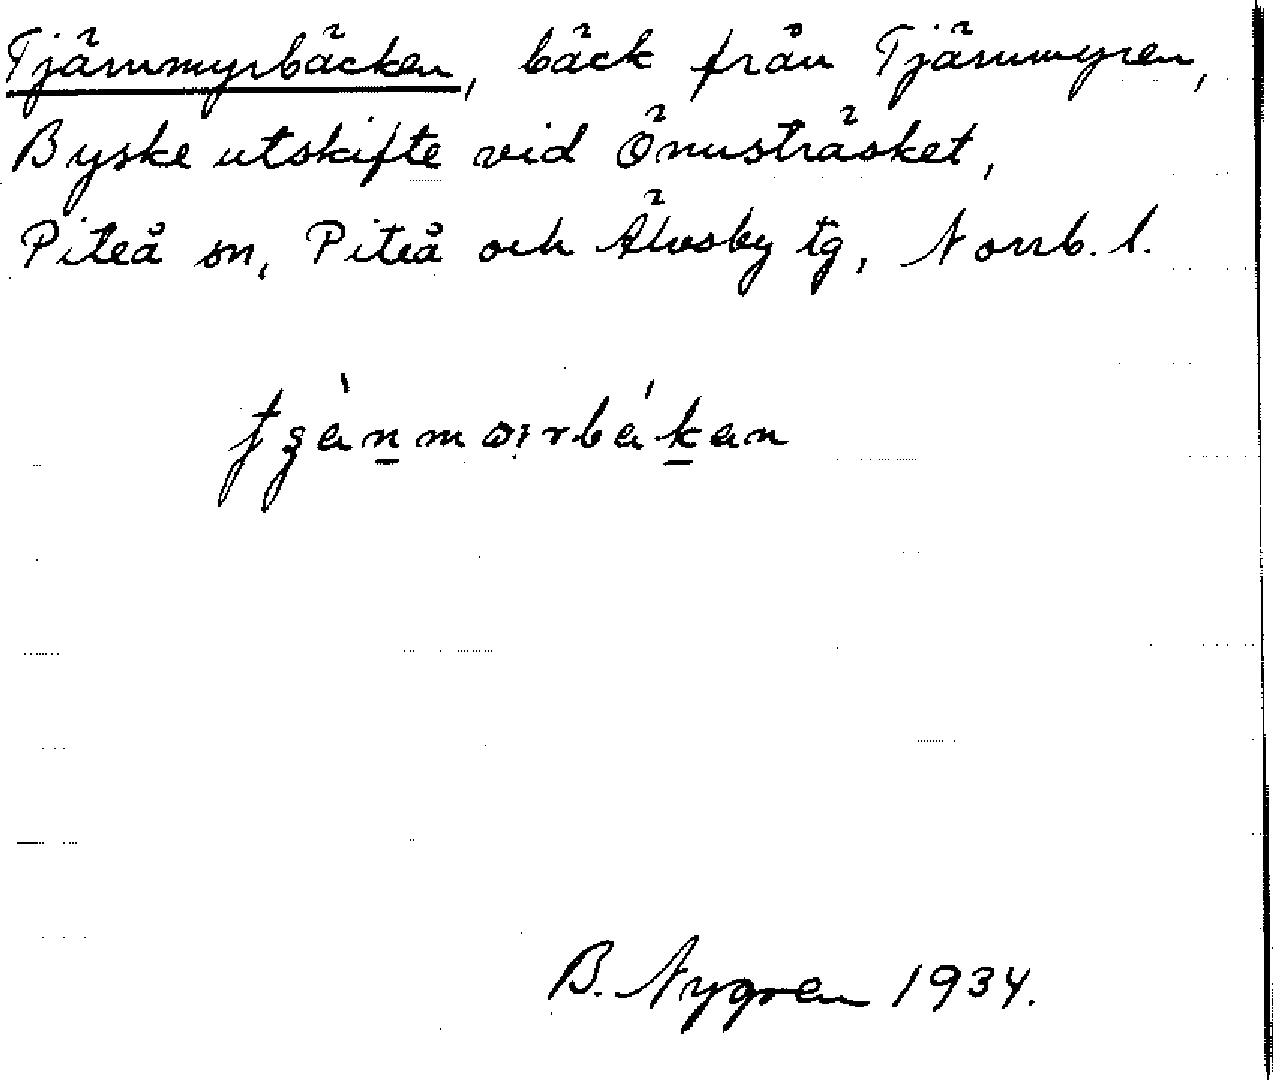 Tjärnmyrbäcken, bäck från Tjärnmyren,
Byske utskifte vid Önusträsket,
Piteå sn, Piteå och Älvsby tg, Norrb. l.
B. Nygren 1934.